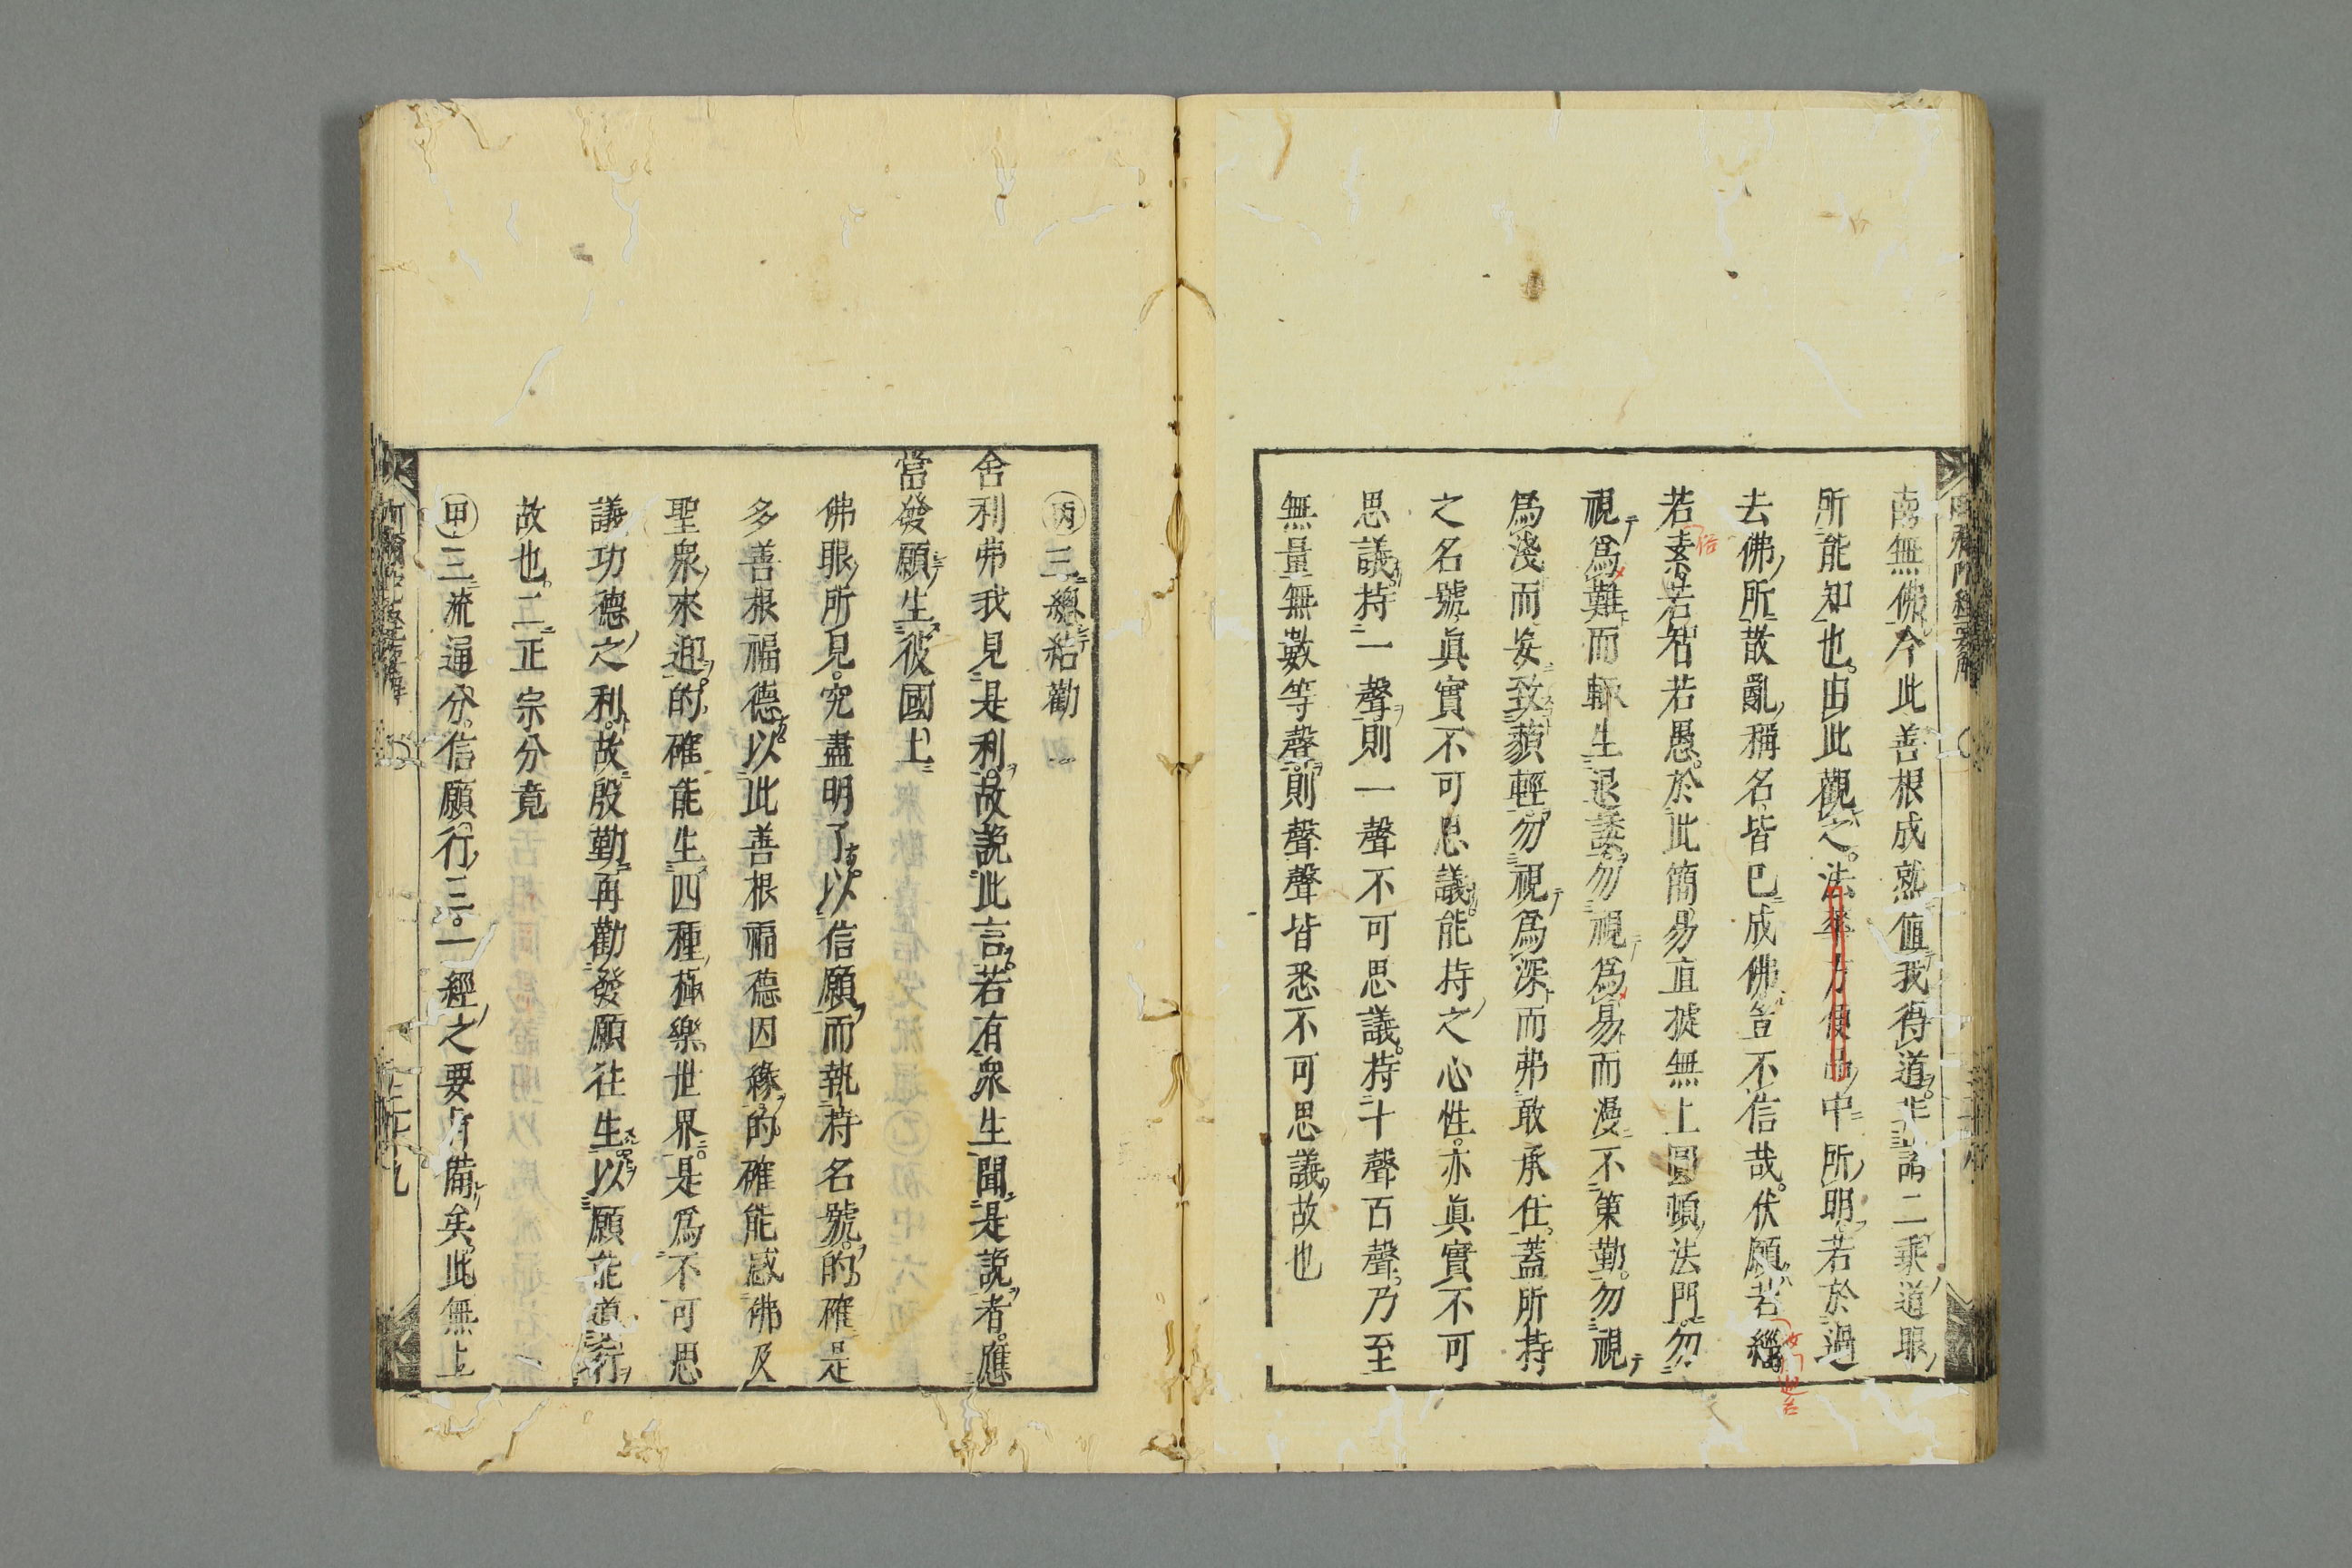 南無佛今此善根成熟値我得道非諸二乘道眼
所能知也由此觀之法華方便品中所明若於過
去佛所散亂稱名皆已成佛豈不信哉伏願若緇
若素若智若愚於此簡易直捷無上圓頓法門勿
視爲難而輒生退諉勿視爲易而漫不策勤勿視
爲淺而妄致藐輕勿視爲深而弗敢承任蓋所持
之名號眞實不可思議能持之心性亦眞實不可
思議持一聲則一聲不可思議持十聲百聲乃至
無量無數等聲則聲聲皆悉不可思議故也
丙三總結勸
舍利弗我見是利故說此言若有衆生聞是說者應
當發願生彼國土
佛眼所見究盡明了以信願而執持名號的確是
多善根福德以此善根福德因緣的確能感佛及
聖衆來迎的確能生四種極樂世界是爲不可思
議功德之利故殷勤再勸發願往生以願能導行
故也二正宗分竟
甲三流通分信願行三一經之要旨備矣此無上